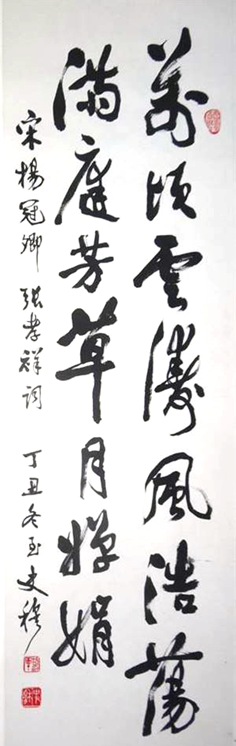 萬頃雲濤風浩蕩
滿庭芳草月嬋娟
宋楊冠卿 張孝祥詞 丁丑冬至 史穆